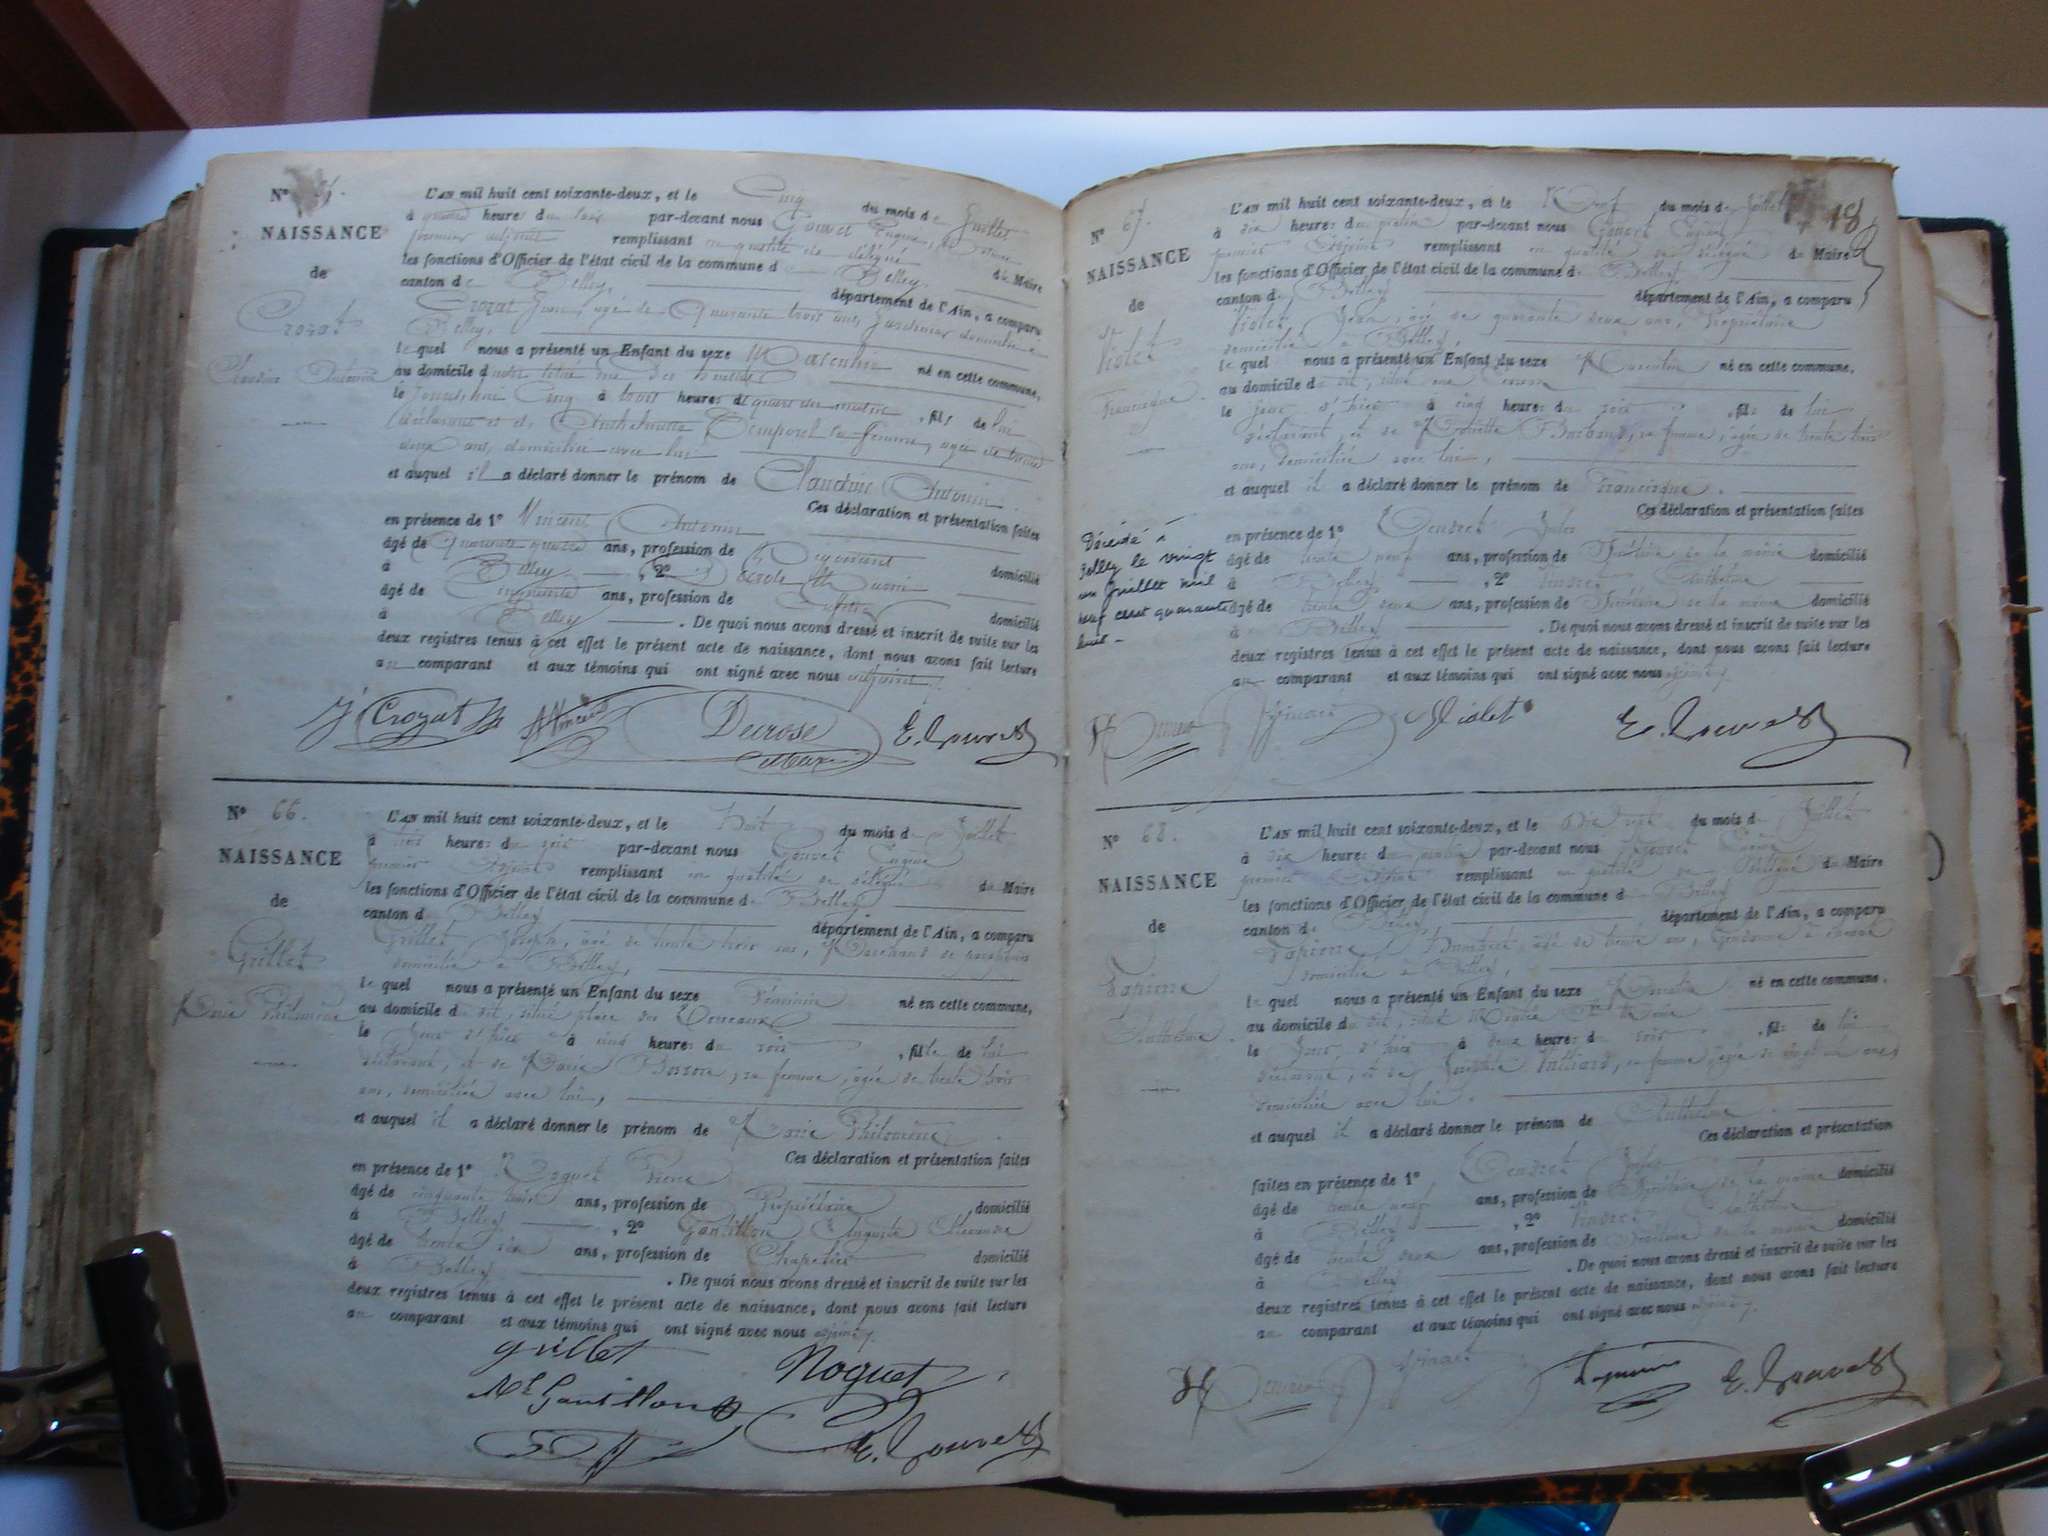 N°
NAISSANCE
de
Crozat
Claudius Antonin
L'AN mil huit cent soixante-deux, et le Cinq du mois de Juillet
à quatre heures du soir par-devant nous Gouvet Eugène,
premier adjoint remplissant en qualité de délégué du Maire
les fonctions d'Officier de l'état civil de la commune de Belley,
canton de Belley, département de l'Ain, a comparu
Crozat Jean, âgé de Quarante trois ans, Jardinier domicilié à
Belley,
lequel nous a présenté un Enfant du sexe Masculin né en cette commune,
au domicile
le Jourd'hui Cinq à trois heures du matin, fils de lui
déclarant et de Anthelmette Temporel sa femme, âgée de trente
deux ans, domiciliée avec lui
et auquel il a déclaré donner le prénom de Claudius Antonin
Ces déclaration et présentation faites
en présence de 1° Vincent Antonin
âgé de Quarante quatre ans, profession de domicilié
à Belley, 2° Decrose
âgé de Cinquante ans, profession de domicilié
à Belley. De quoi nous avons dressé et inscrit de suite sur les
deux registres tenus à cet effet le présent acte de naissance, dont nous avons fait lecture
au comparant et aux témoins qui ont signé avec nous adjoint.
J Crozat A Vincent Decrose E. Gouvet
N° 66.
NAISSANCE
de
Grillet
Marie Philomène
L'AN mil huit cent soixante-deux, et le Huit du mois de Juillet
à trois heures du soir par-devant nous Gouvet Eugène
premier Adjoint remplissant en qualité de délégué du Maire
les fonctions d'Officier de l'état civil de la commune de Belley
canton de Belley département de l'Ain, a comparu
Grillet Joseph, âgé de trente trois ans, Marchand de parapluies
domicilié à Belley,
lequel nous a présenté un Enfant du sexe Féminin né en cette commune,
au domicile du dit, situé place des Terreaux
le Jour d'hier à cinq heures du soir, fille de lui
déclarant, et de Marie sa femme, âgée de trente trois
ans, domiciliée avec lui,
et auquel il a déclaré donner le prénom de Marie Philomène
Ces déclaration et présentation faites
en présence de 1° Noguet Pierre
âgé de cinquante trois ans, profession de Propriétaire domicilié
à Belley, 2° Gantillon Auguste Alexandre
âgé de trente six ans, profession de Chapelier domicilié
à Belley. De quoi nous avons dressé et inscrit de suite sur les
deux registres tenus à cet effet le présent acte de naissance, dont nous avons fait lecture
au comparant et aux témoins qui ont signé avec nous adjoint.
grillet Noguet
Gantillon E. Gouvet
18
N° 67.
NAISSANCE
de
Violet
Francisque
Décédé à
Belley le vingt
un Juillet mil
neuf cent quarante
huit -
L'AN mil huit cent soixante-deux, et le Neuf du mois de Juillet
à dix heures du matin par-devant nous Gouvet Eugène
premier Adjoint remplissant en qualité de délégué du Maire
les fonctions d'Officier de l'état civil de la commune de Belley
canton de Belley département de l'Ain, a comparu
Violet, Jean, âgé de quarante deux ans, Propriétaire
domicilié à Belley,
lequel nous a présenté un Enfant du sexe Masculin né en cette commune,
au domicile du dit, situé rue
le Jour d'hier à cinq heures du soir, fils de lui
déclarant, et de sa femme, âgée de trente trois
ans, domiciliée avec lui,
et auquel il a déclaré donner le prénom de Francisque.
Ces déclaration et présentation faites
en présence de 1° Gendret Jules
âgé de trente neuf ans, profession de Secrétaire de la mairie domicilié
à Belley, 2° Anthelme
âgé de trente deux ans, profession de Secrétaire de la mairie domicilié
à Belley. De quoi nous avons dressé et inscrit de suite sur les
deux registres tenus à cet effet le présent acte de naissance, dont nous avons fait lecture
au comparant et aux témoins qui ont signé avec nous adjoint.
Violet E. Gouvet
N° 68.
NAISSANCE
de
Lapierre
Anthelme.
L'AN mil huit cent soixante-deux, et le Dix huit du mois de Juillet
à dix heures du matin par-devant nous Gouvet Eugène
premier Adjoint remplissant en qualité de Délégué du Maire
les fonctions d'Officier de l'état civil de la commune de Belley
canton de Belley, département de l'Ain, a comparu
Lapierre, âgé de trente ans, Gendarme à cheval
domicilié à Belley,
lequel nous a présenté un Enfant du sexe Masculin né en cette commune.
au domicile du dit, situé
le Jour d'hier à deux heures du soir, fils de lui
déclarant, et de sa femme, âgée de ans
domiciliée avec lui.
et auquel il a déclaré donner le prénom de Anthelme
Ces déclaration et présentation
faites en présence de 1° Gendret Jules
âgé de trente neuf ans, profession de Secrétaire de la mairie domicilié
à Belley, 2° Anthelme
âgé de trente deux ans, profession de Secrétaire de la mairie domicilié
à Belley. De quoi nous avons dressé et inscrit de suite sur les
deux registres tenus à cet effet le présent acte de naissance, dont nous avons fait lecture
au comparant et aux témoins qui ont signé avec nous adjoint.
Lapierre E. Gouvet